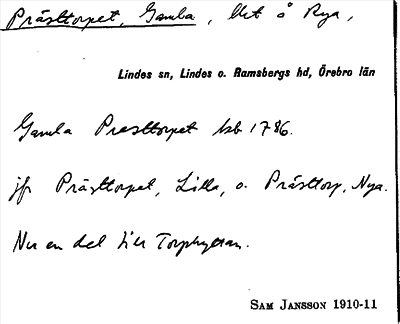 Prästtorpet, Gamla, lht å Nya,
Lindes sn, Lindes o. Ramsbergs hd, Örebro län
Gamla Prasttorpet hb 1786.
jfr Prästtorpet, Lilla, o. Prästtorp, Nya.
Nu en del till Torphyttan.
SAM JANSSON 1910-11